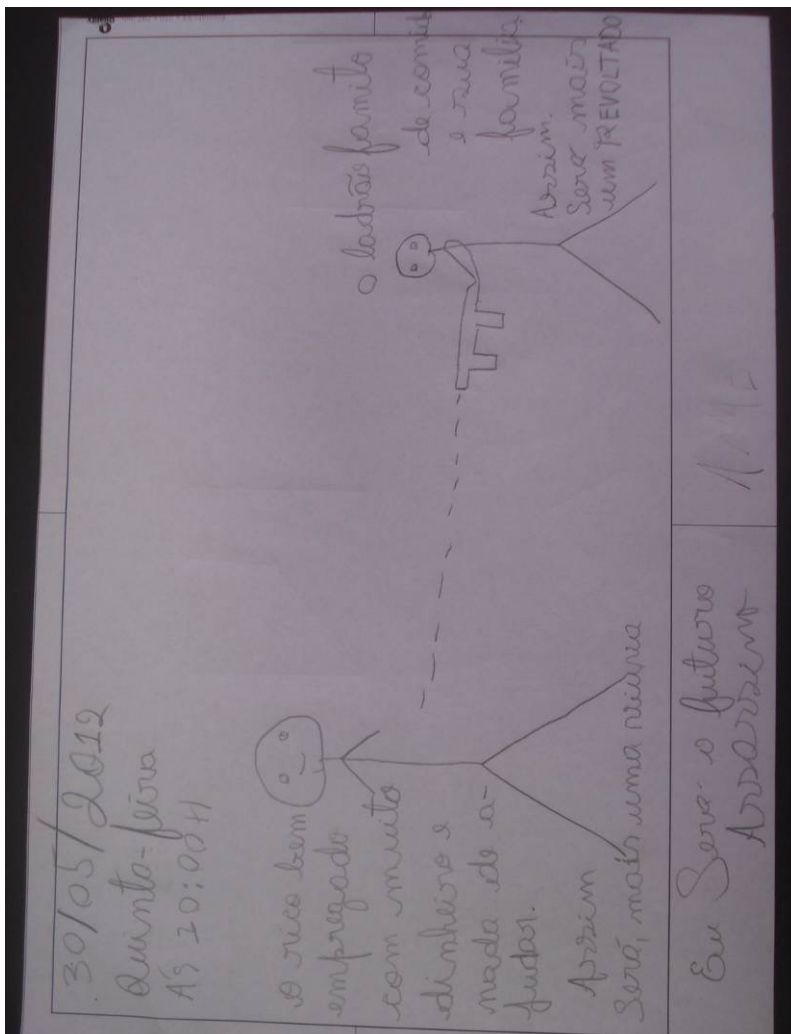 30/05/2012
Quinta-feira
ÁS 20:00 H
o rico bem
empregado
com muito
dinheiro e
nada de a-
judar.
Assim
Será, mais uma vitima
O ladrão famito
de comida
e sua
familia
Assim.
Será mais
um REVOLTADO
Eu Sera o futuro
Assassino